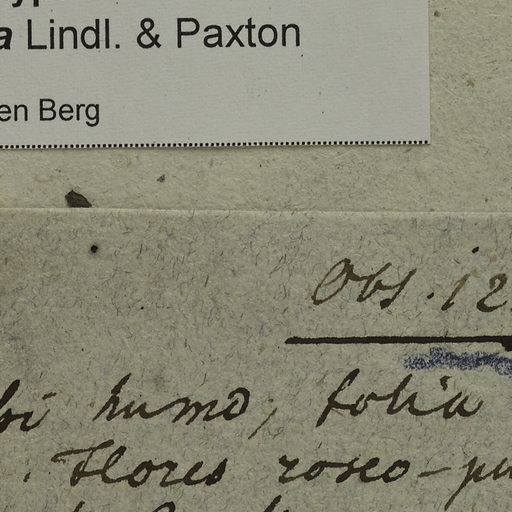 a Lindl. & Paxton
en Berg
Obs. 12
bi humo, folia
. Flores roseo-pu